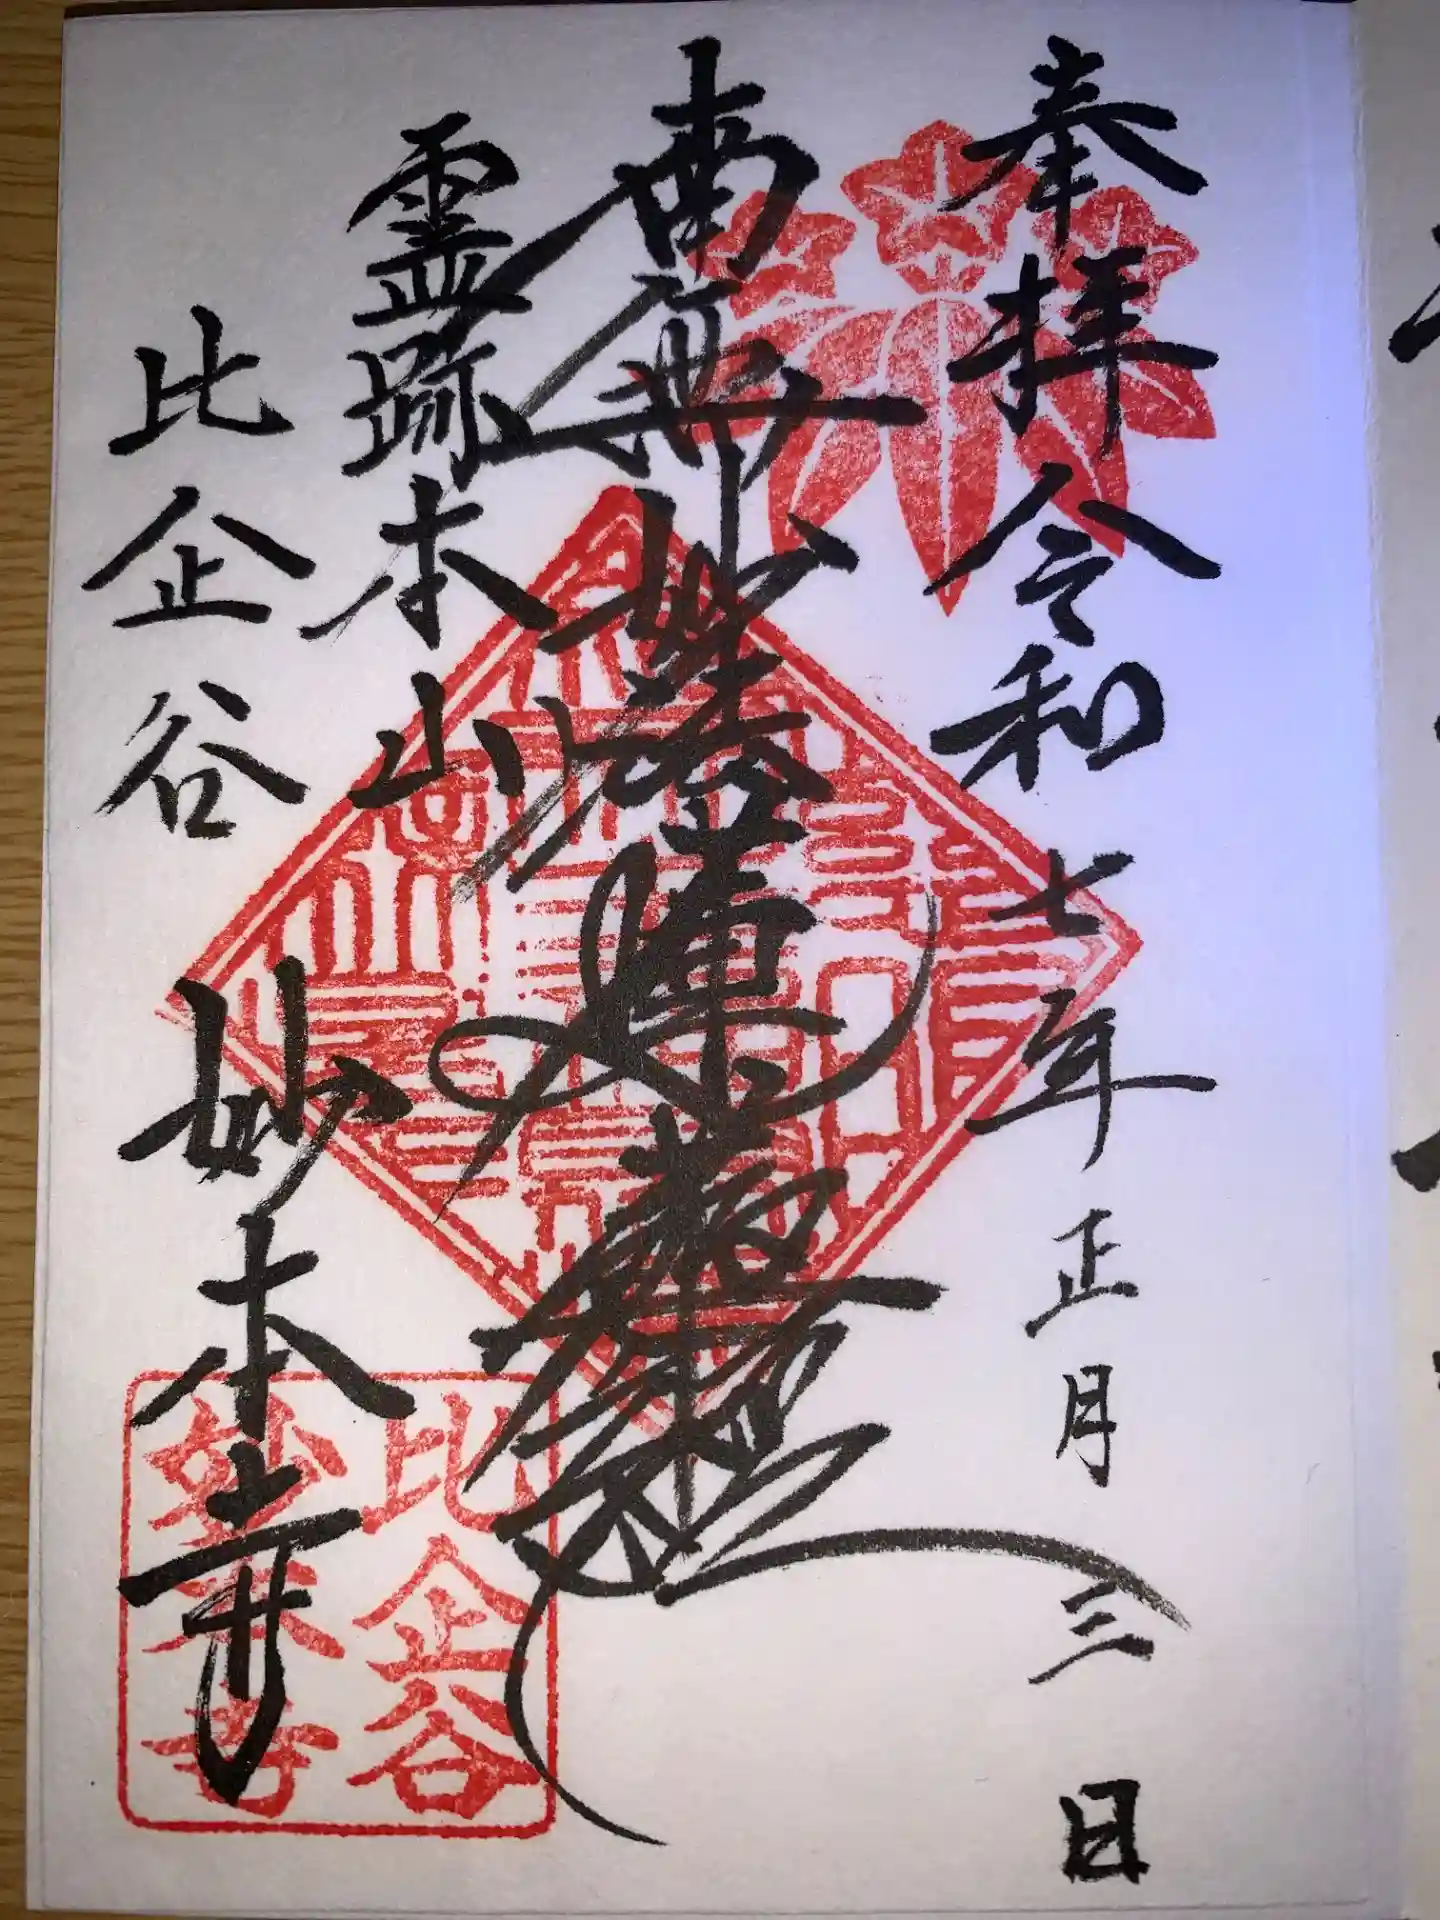 奉拝 令和七年正月三日
南無妙法蓮華経
霊跡本山
比企谷 妙本寺
比企谷
妙本寺